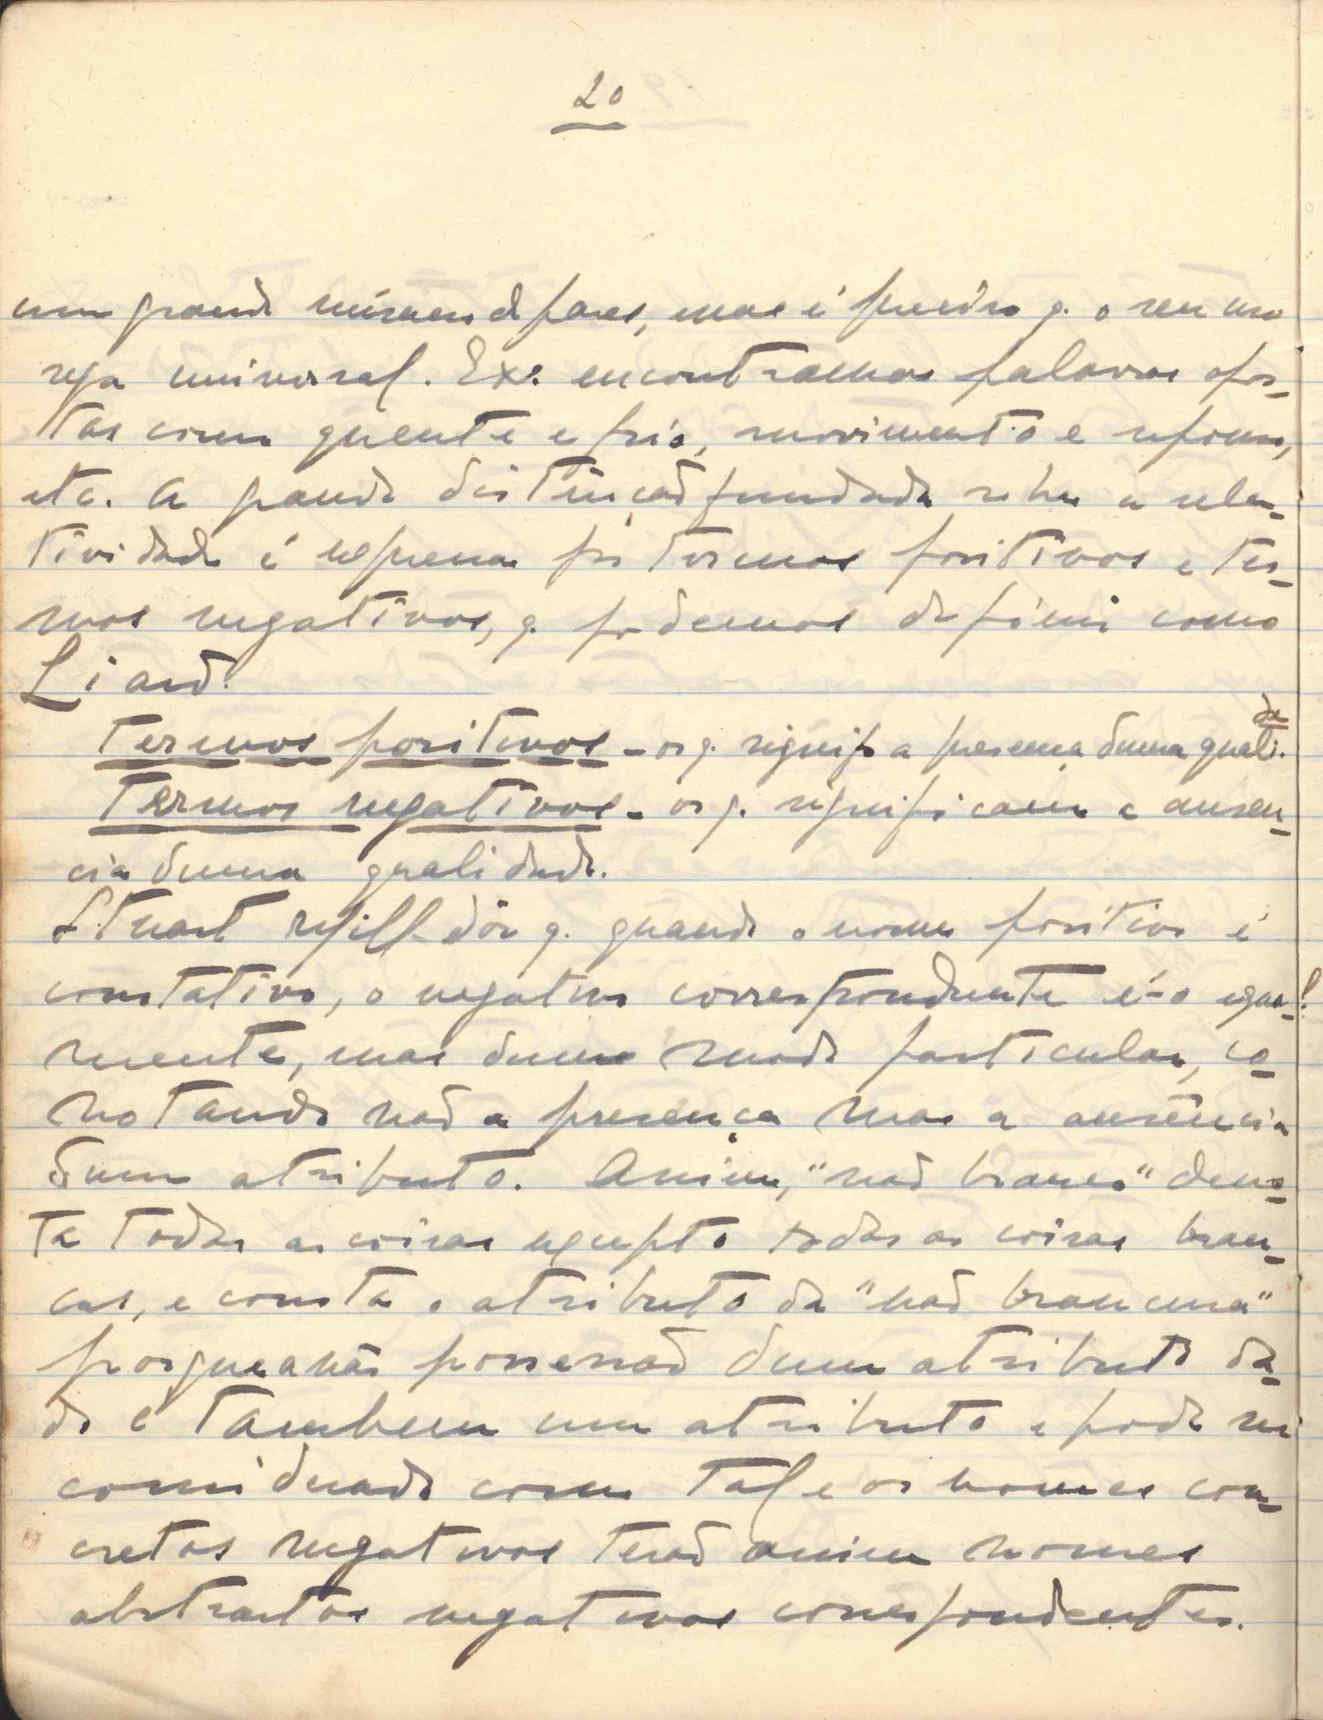 20
um grande número de pares, mas é preciso q. o seu uso
seja universal. Ex: encontramos palavras opos-
tas como quente e frio, movimento e repouso,
etc. A grande distinção fundada sobre a rela-
tividade é expressa por termos positivos e ter-
mos negativos, q. podemos definir como
Liard:
Termos positivos - os q. signif. a presença duma quali.de
Termos negativos - os q. significam a ausen-
cia duma qualidade.
Stuart Mill diz q. quando o nome positivo é
conotativo, o negativo correspondente é-o igual-
mente, mas dum modo particular, co-
notando não a presença mas a ausência
dum atributo. Assim, "não branco" deno-
ta todas as coisas excepto todas as coisas bran-
cas, e conota o atributo da "não brancura"
porque a não possessão dum atributo da-
do é tambem um atributo e pode ser
considerado como tal e os nomes con-
cretos negativos terão assim nomes
abstractos negativos correspondentes.